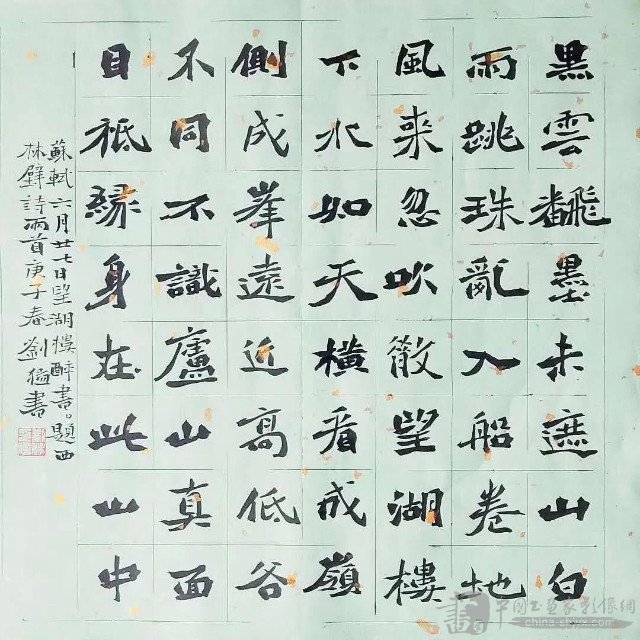 黑雲飜墨未遮山白
雨跳珠亂入船卷地
風来忽吹散望湖樓
下水如天橫看成嶺
側成峯遠近高低谷
不同不識廬山真面
目祇緣身在此山中
蘇軾六月廿七日望湖樓醉書。題西
林壁詩兩首庚子春劍書
中國书画家影像網
china-shyx.com